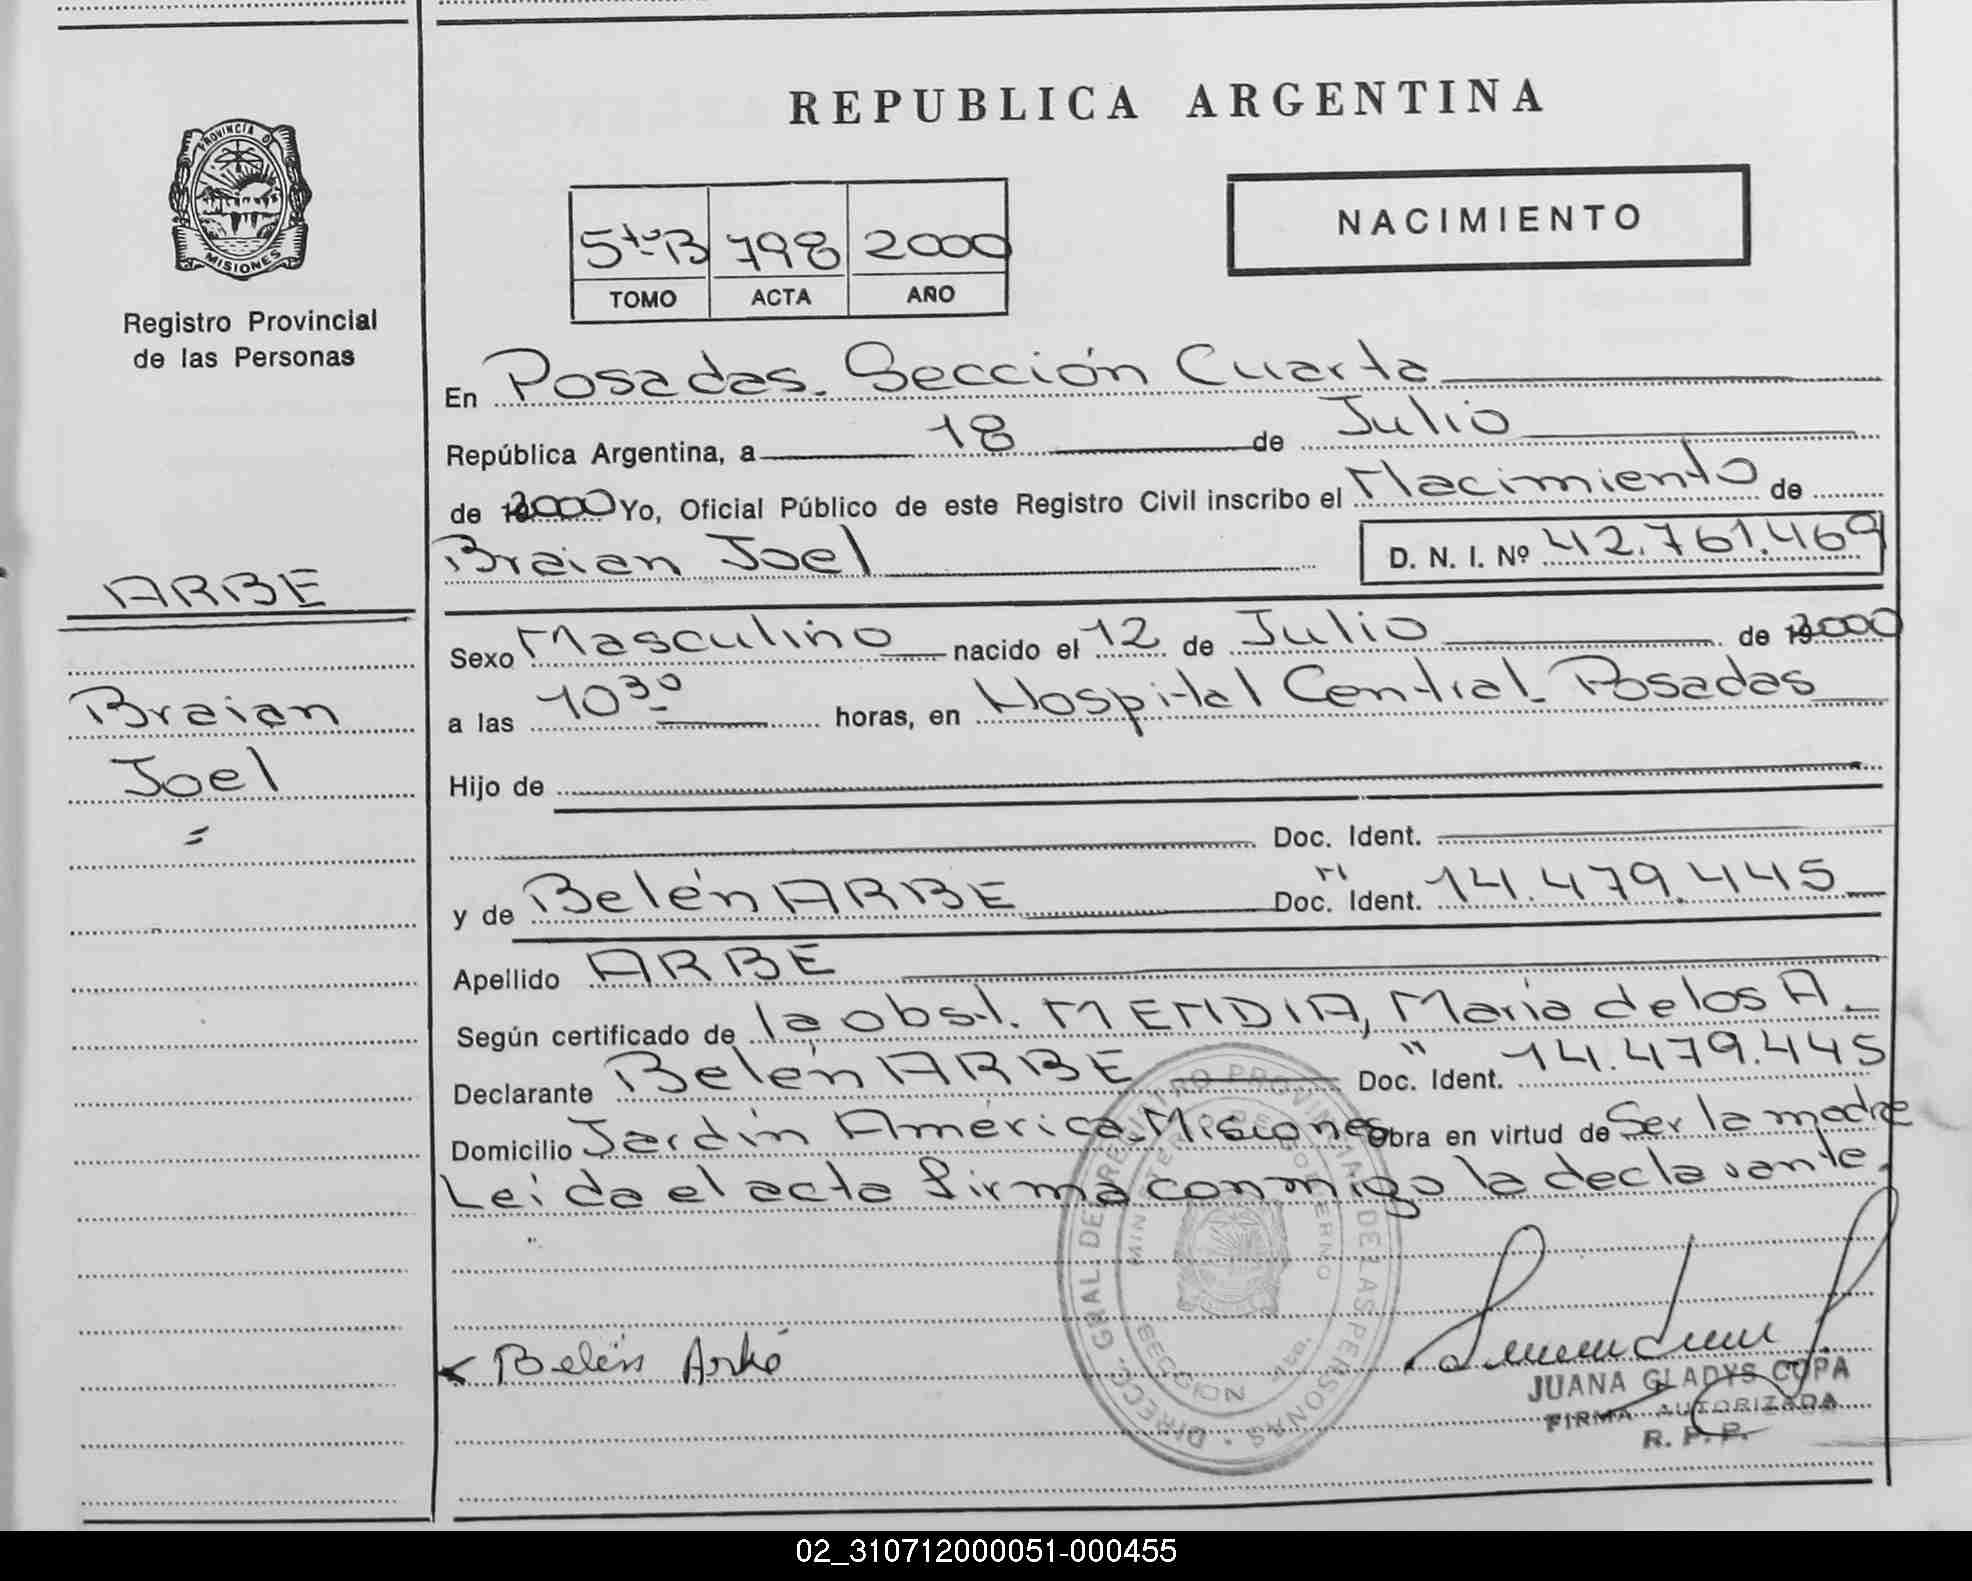 REPUBLICA ARGENTINA
PROVINCIA D
MISIONES
Registro Provincial
de las Personas
NACIMIENTO
5to B 798 2000
TOMO ACTA AÑO
En Posadas. Sección Cuarta
República Argentina, a 18 de Julio
de 2000 Yo, Oficial Público de este Registro Civil inscribo el Nacimiento de
Braian Joel D. N. I. Nº 42.761.469
ARBE
Braian
Joel
Sexo Masculino nacido el 12 de Julio de 2000
a las 10³⁰ horas, en Hospital Central. Posadas
Hijo de
Doc. Ident.
y de Belén ARBE Doc. Ident. 14.479.445
Apellido ARBE
Según certificado de la obst. MENDIA, María de los A.
Declarante Belén ARBE Doc. Ident. " 14.479.445
Domicilio Jardín América. Misiones Obra en virtud de Ser la madre
Leida el acta firma conmigo la declarante.
Belén Arbé
DIRECC. GRAL. DE REGISTRO PROVINCIAL DE LAS PERSONAS
MINISTERIO DE GOBIERNO
SECCION 4ta.
JUANA GLADYS COPA
FIRMA AUTORIZADA
R. P. P.
02_310712000051-000455